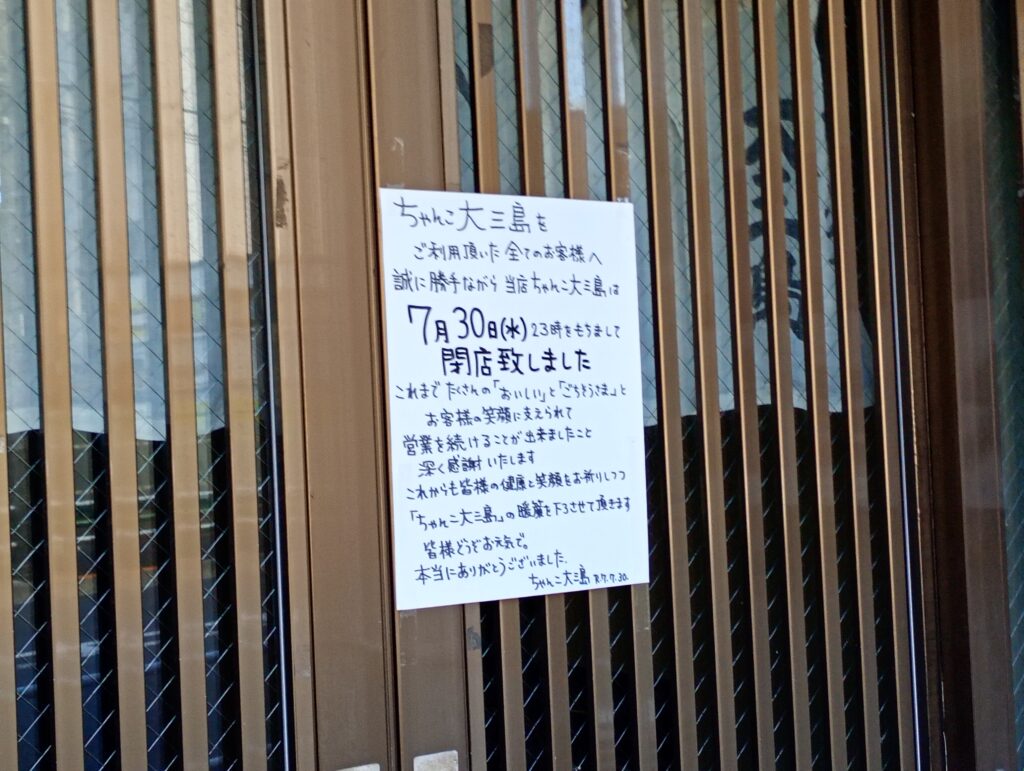 ちゃんこ大三島を
ご利用頂いた全てのお客様へ
誠に勝手ながら当店ちゃんこ大三島は
7月30日(水)23時をもちまして
閉店致しました
これまでたくさんの「おいしい」と「ごちそうさま」と
お客様の笑顔に支えられて
営業を続けることが出来ましたこと
深く感謝いたします
これからも皆様の健康と笑顔をお祈りしつつ
「ちゃんこ大三島」の暖簾を下ろさせて頂きます
皆様どうぞお元気で。
本当にありがとうございました.
ちゃんこ大三島 R7.7.30.